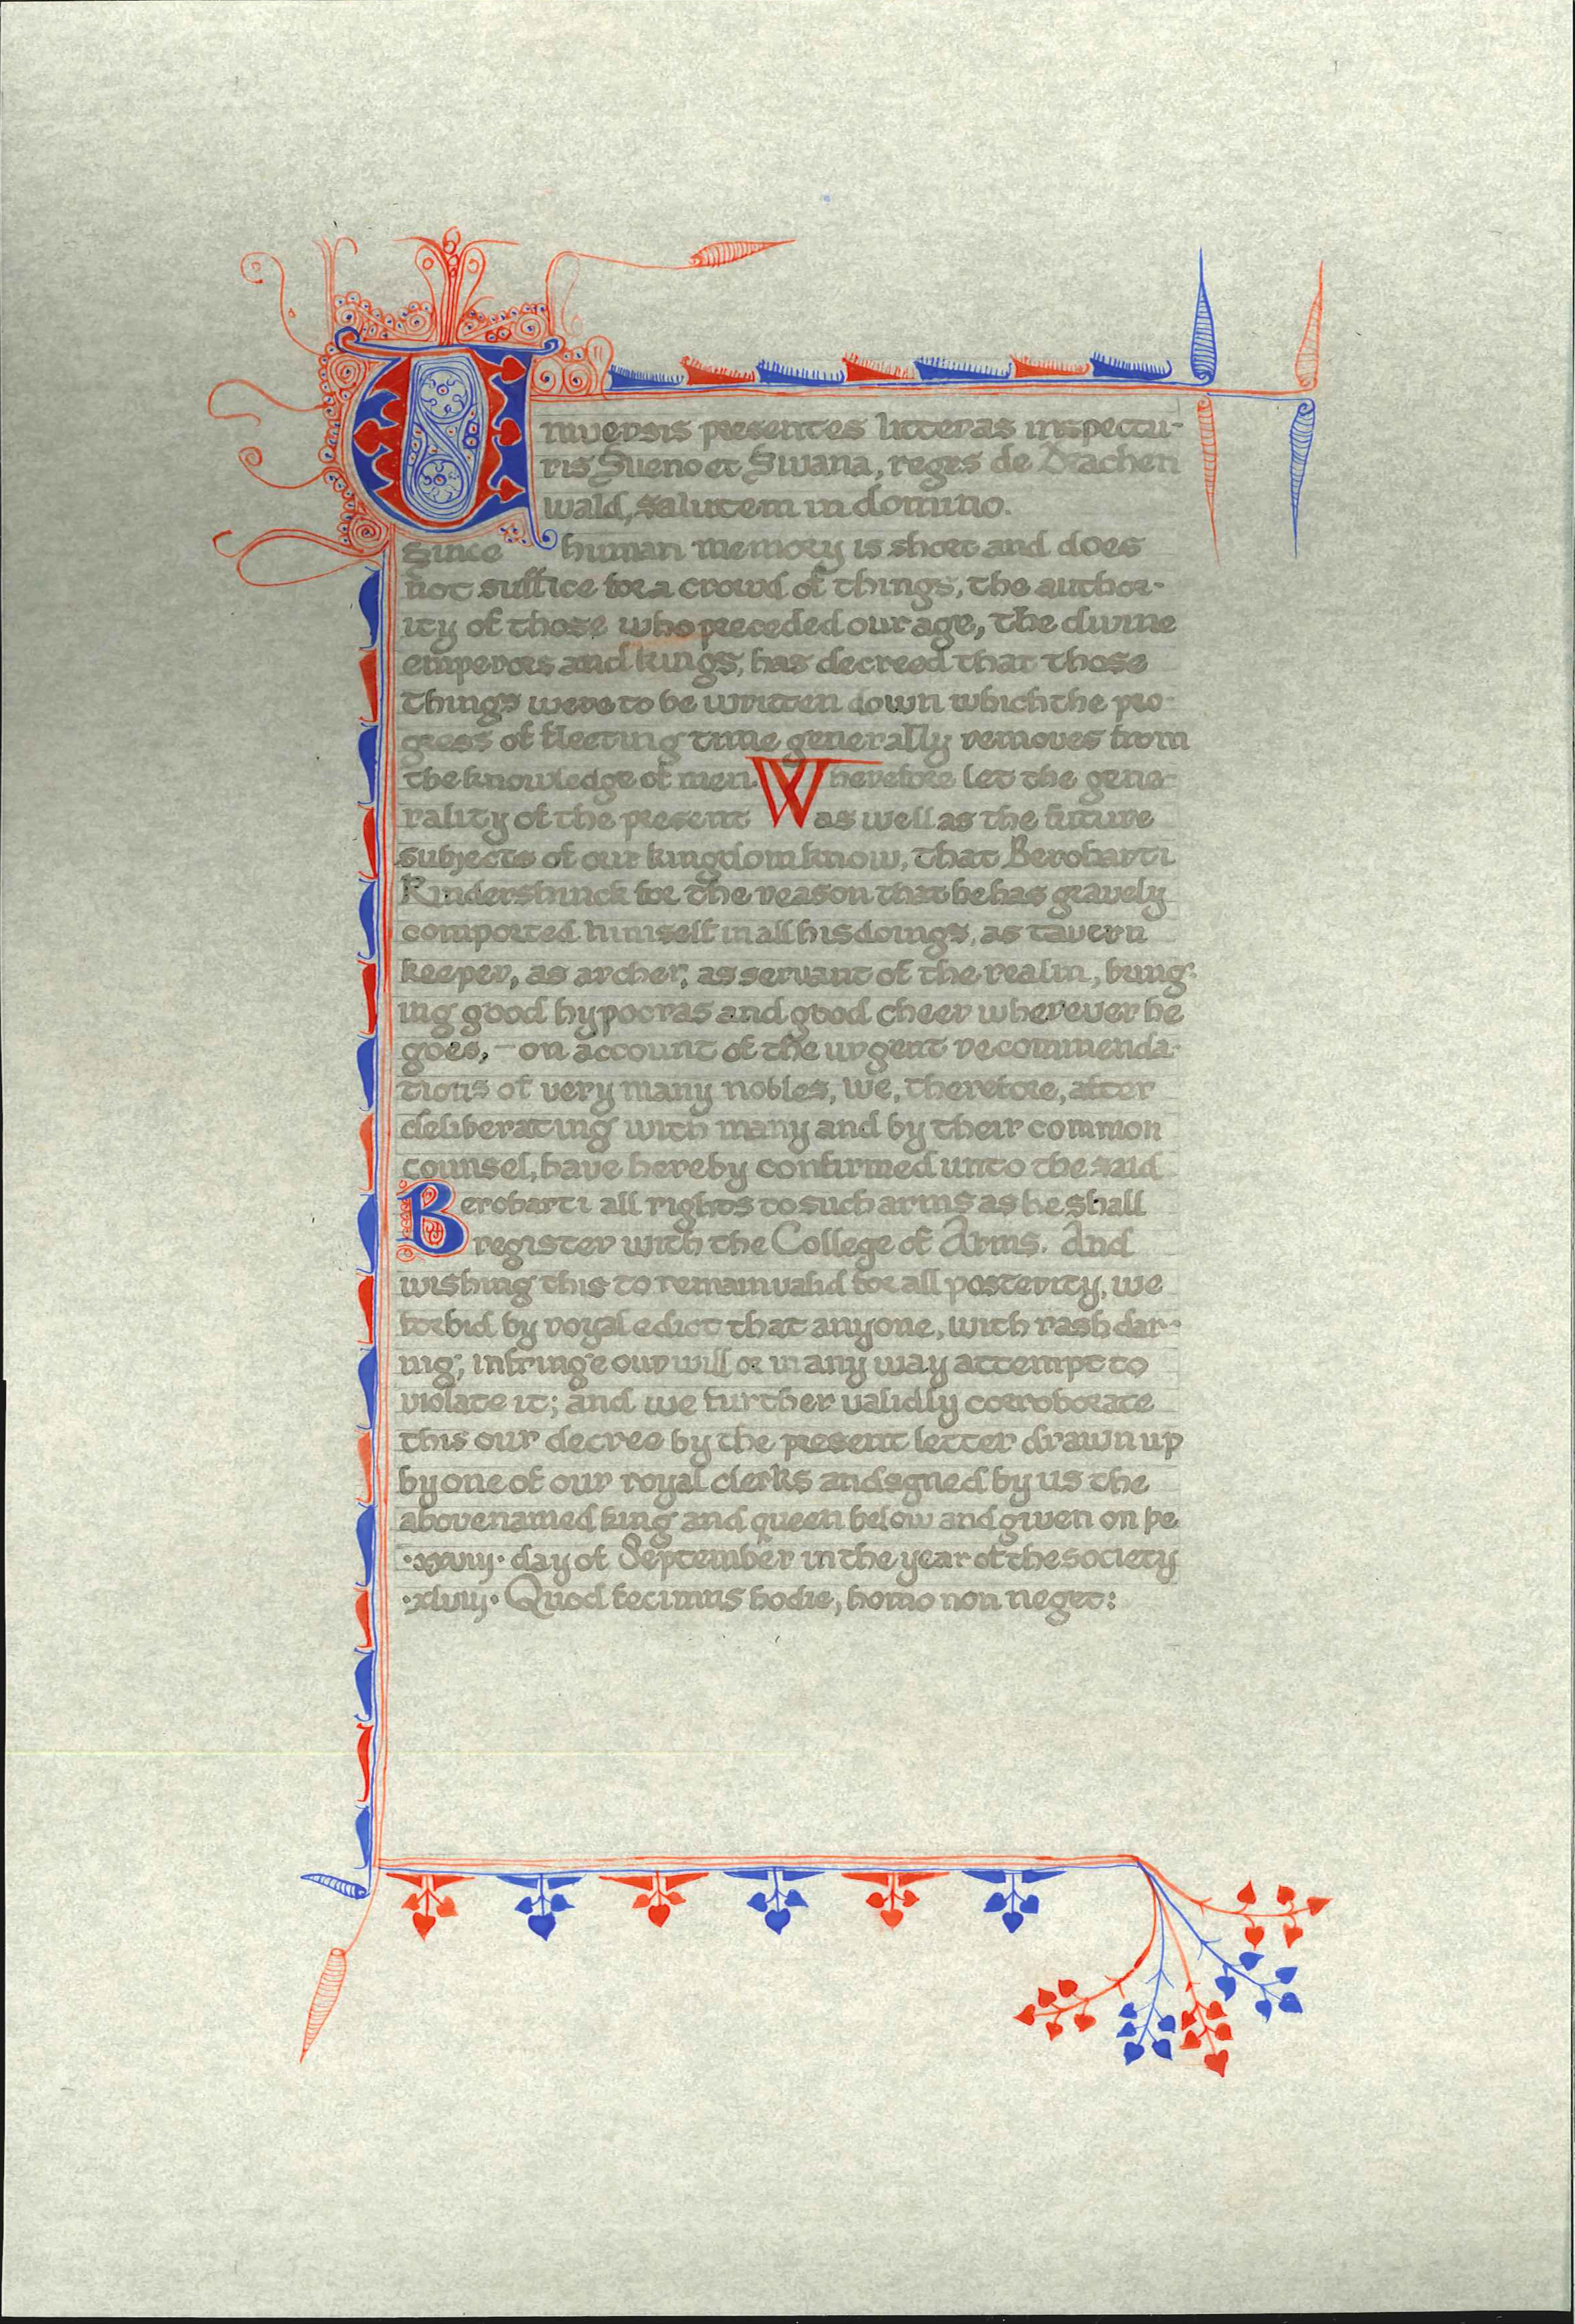 Universis presentes litteras inspectu-
ris Sueno et Swana, reges de Drachen
wald, salutem in domino.
Since human memory is short and does
not suffice for a crowd of things, the author-
ity of those who preceded our age, the divine
emperors and kings, has decreed that those
things were to be written down which the pro-
gress of fleeting time generally removes from
the knowledge of men Wherefore let the gene-
rality of the present as well as the future
subjects of our kingdom know, that Berobarti
Rindershinck for the reason that he has gravely
comported himself in all his doings, as tavern
keeper, as archer, as servant of the realm, bring-
ing good hypocras and good cheer wherever he
goes, – on account of the urgent recommenda-
tions of very many nobles, we, therefore, after
deliberating with many and by their common
counsel, have hereby confirmed unto the said
Berobarti all rights to such arms as he shall
register with the College of Arms. And
wishing this to remain valid for all posterity, we
forbid by royal edict that anyone, with rash dar-
nig, infringe our will or in any way attempt to
violate it; and we further validly corroborate
this our decree by the present letter drawn up
by one of our royal clerks and signed by us the
abovenamed king and queen below and given on þe
·xxviij· day of September in the year of the society
·xlviij· Quod fecimus hodie, homo non neget: